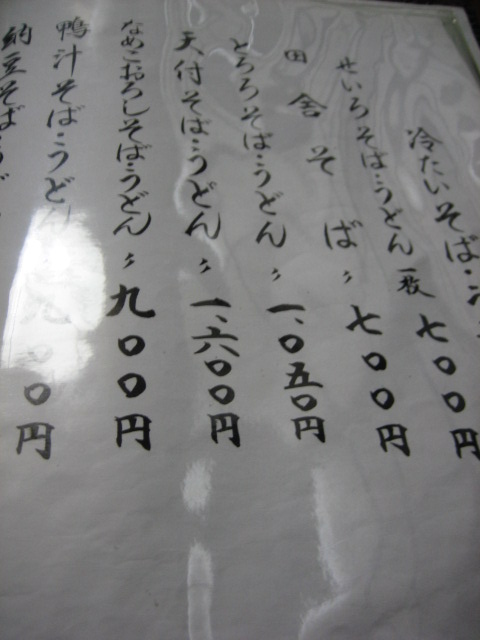 冷たいそば・
せいろそば・うどん 一枚 七〇〇円
田舎そば 〃 七〇〇円
とろろそば・うどん 〃 一、〇五〇円
天付そば・うどん 〃 一、六〇〇円
なめこおろしそば・うどん 〃 九〇〇円
鴨汁そば・うどん 〇円
納豆そば・うど